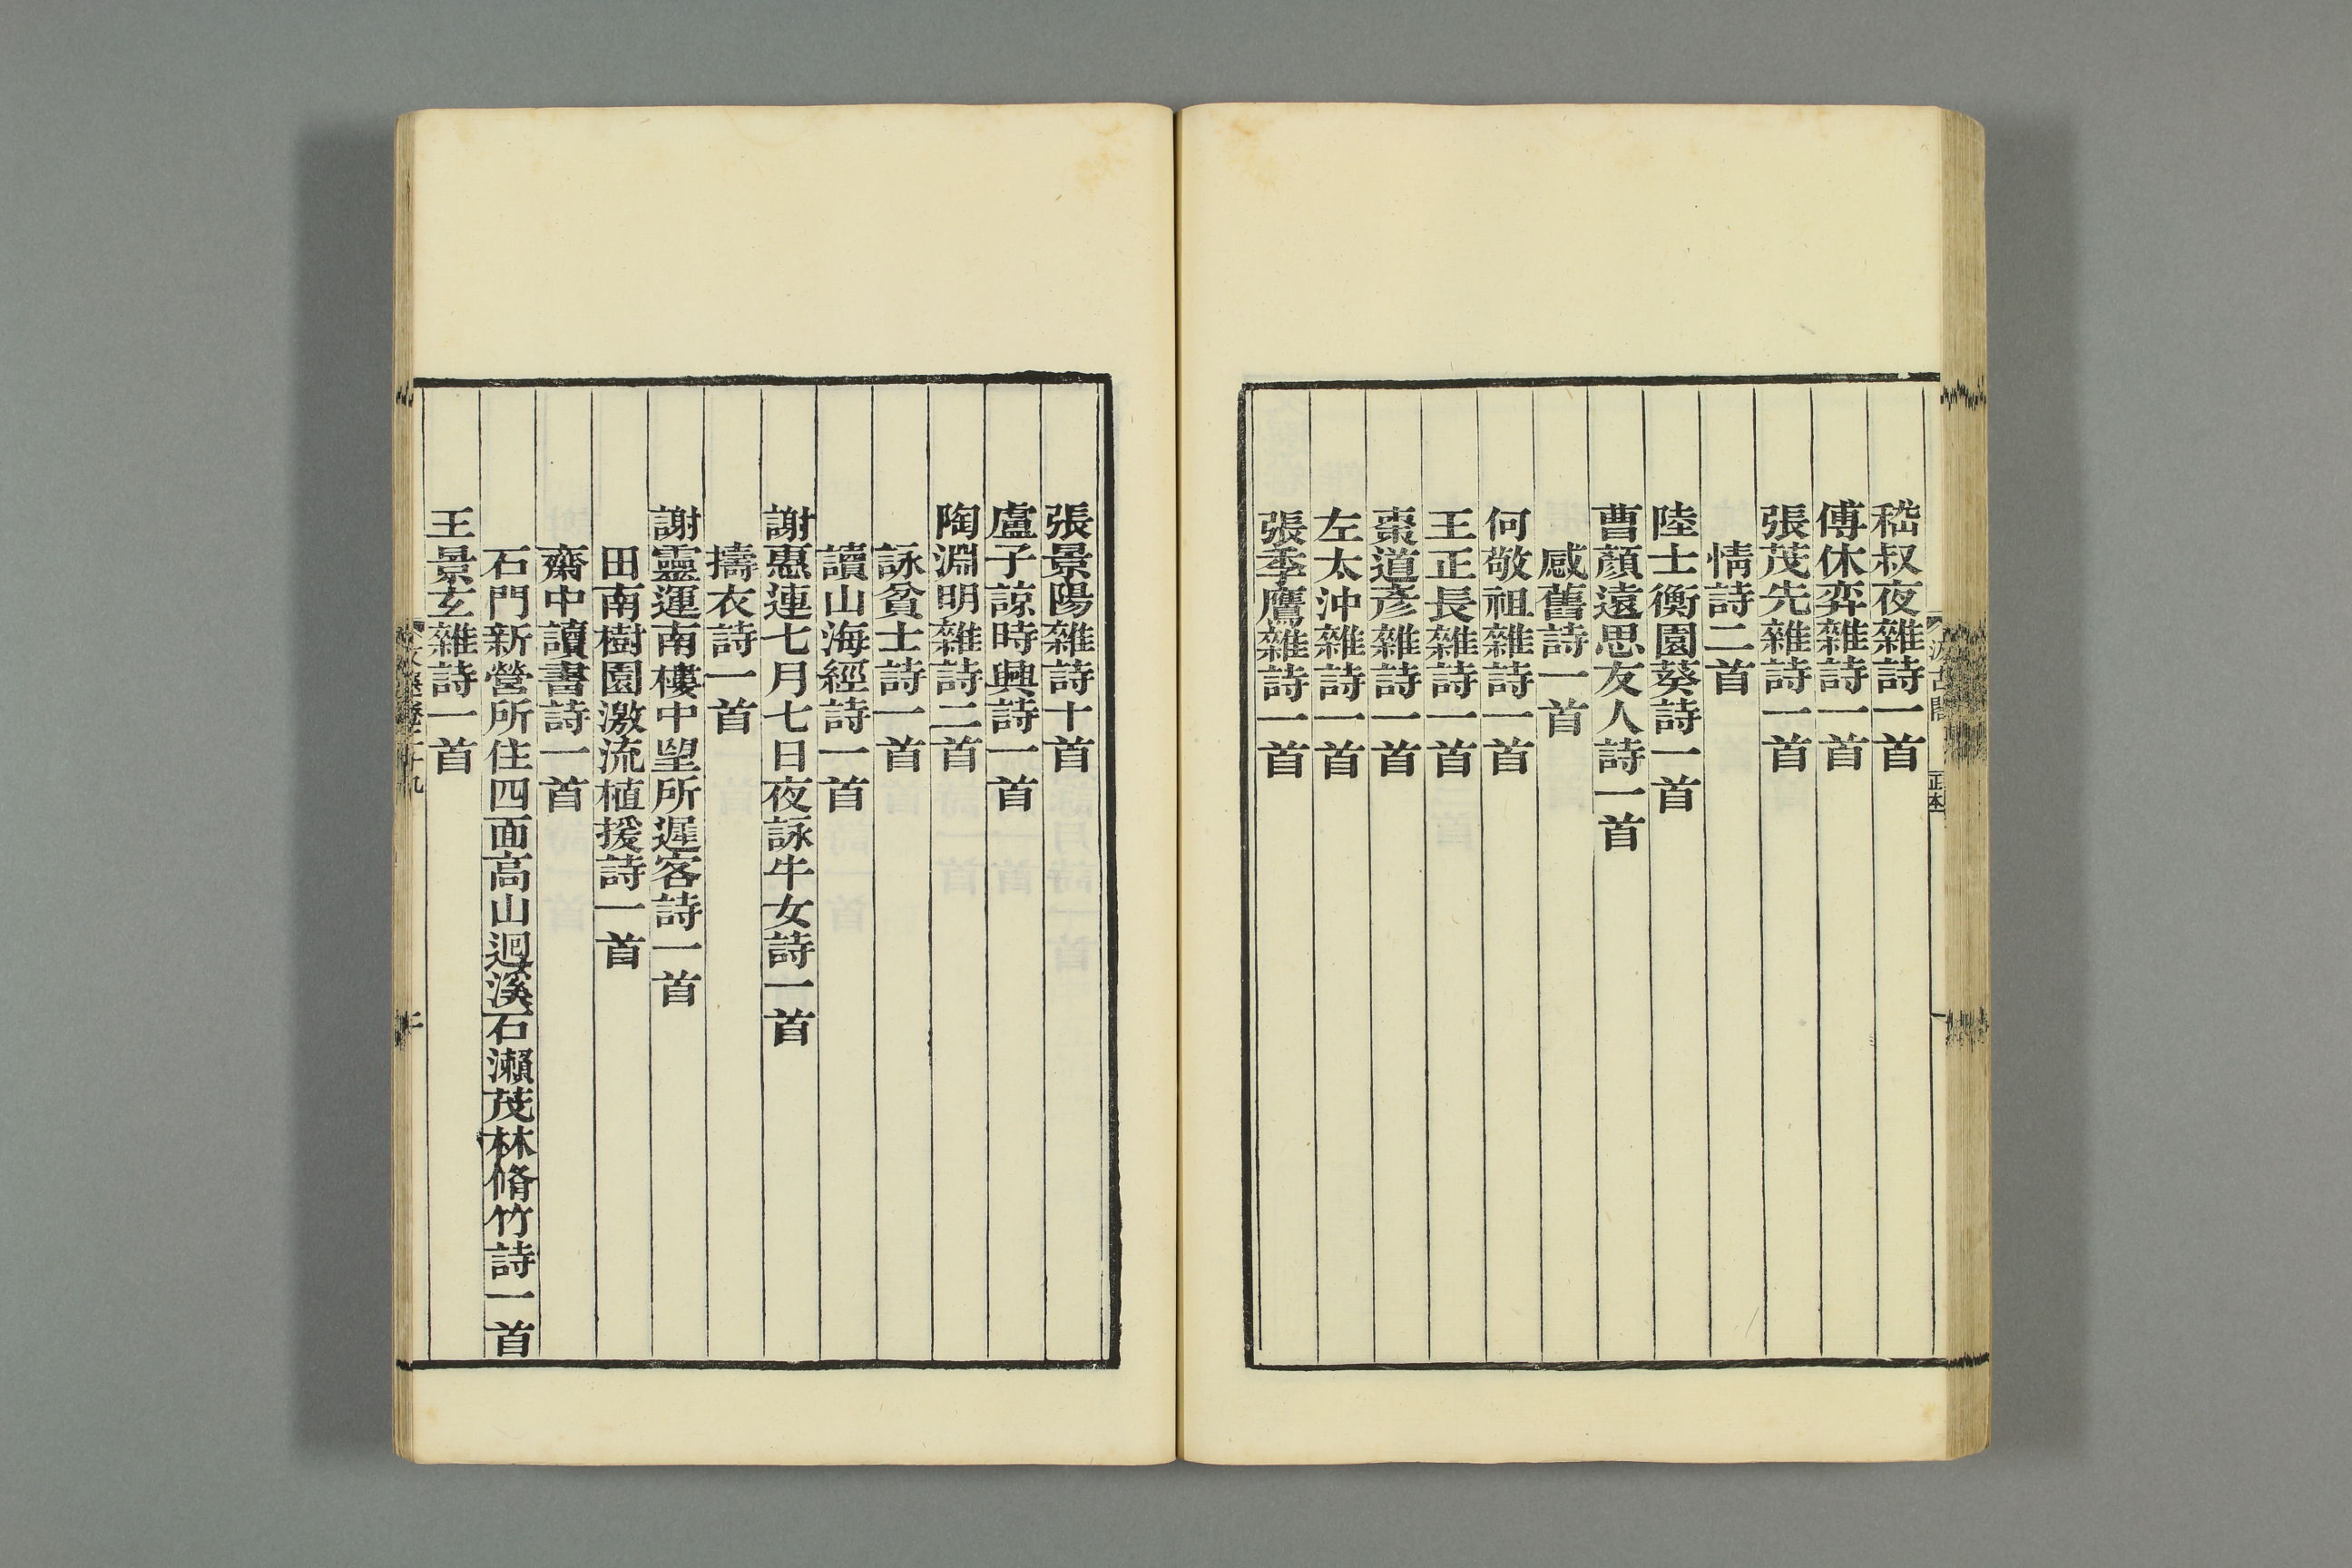 嵇叔夜雜詩一首
傅休弈雜詩一首
張茂先雜詩一首
情詩二首
陸士衡園葵詩一首
曹顏遠思友人詩一首
感舊詩一首
何敬祖雜詩一首
王正長雜詩一首
棗道彥雜詩一首
左太沖雜詩一首
張季鷹雜詩一首
張景陽雜詩十首
盧子諒時興詩一首
陶淵明雜詩二首
詠貧士詩一首
讀山海經詩一首
謝惠連七月七日夜詠牛女詩一首
擣衣詩一首
謝靈運南樓中望所遲客詩一首
田南樹園激流植援詩一首
齋中讀書詩一首
石門新營所住四面高山迴溪石瀨茂林脩竹詩一首
王景玄雜詩一首